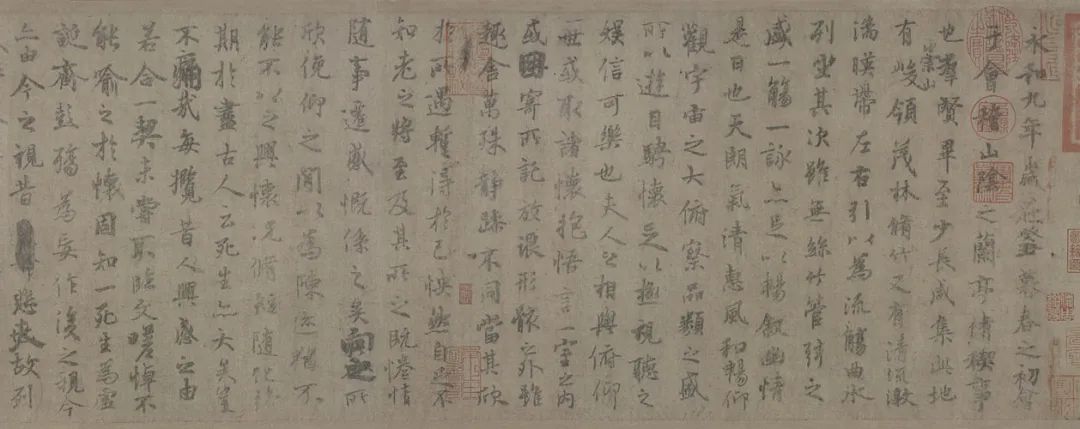 永和九年歲在癸丑暮春之初會
于會稽山陰之蘭亭脩禊事
也羣賢畢至少長咸集此地
有崇山峻領茂林脩竹又有清流激
湍暎帶左右引以為流觴曲水
列坐其次雖無絲竹管弦之
盛一觴一詠亦足以暢敘幽情
是日也天朗氣清惠風和暢仰
觀宇宙之大俯察品類之盛
所以遊目騁懷足以極視聽之
娛信可樂也夫人之相與俯仰
一世或取諸懷抱悟言一室之內
或因寄所託放浪形骸之外雖
趣舍萬殊静躁不同當其欣
於所遇暫得於己怏然自足不
知老之將至及其所之既惓情
隨事遷感慨係之矣向之所
欣俛仰之閒以為陳迹猶不
能不以之興懷況脩短隨化終
期於盡古人云死生亦大矣豈
不痛哉每攬昔人興感之由
若合一契未嘗不臨文嗟悼不
能喻之於懷固知一死生為虛
誕齊彭殤為妄作後之視今
亦由今之視昔悲夫故列